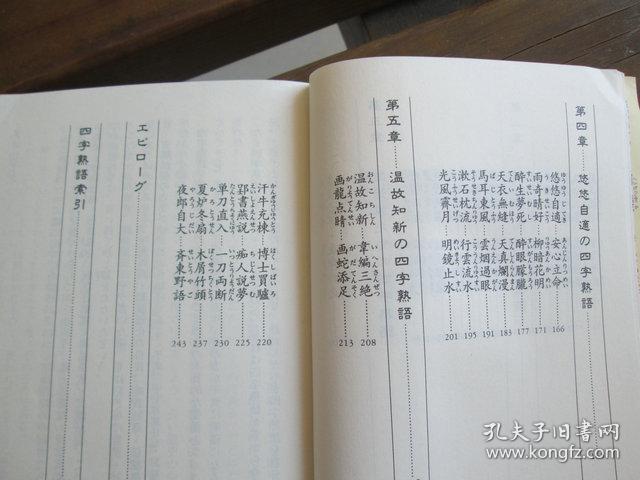 第四章……悠悠自適の四字熟語
悠悠自適 安心立命 166
雨奇晴好 柳暗花明 171
酔生夢死 酔眼朦朧 177
天衣無縫 天真爛漫 183
馬耳東風 雲烟過眼 191
漱石枕流 行雲流水 195
光風霽月 明鏡止水 201
第五章……温故知新の四字熟語
温故知新 韋編三絶 208
画龍点睛 画蛇添足 213
汗牛充棟 博士買驢 220
郢書燕説 痴人説夢 225
単刀直入 一刀両断 230
夏炉冬扇 木屑竹頭 237
夜郎自大 斉東野語 243
エピローグ
四字熟語索引
孔夫子旧书网
www.kongfz.com